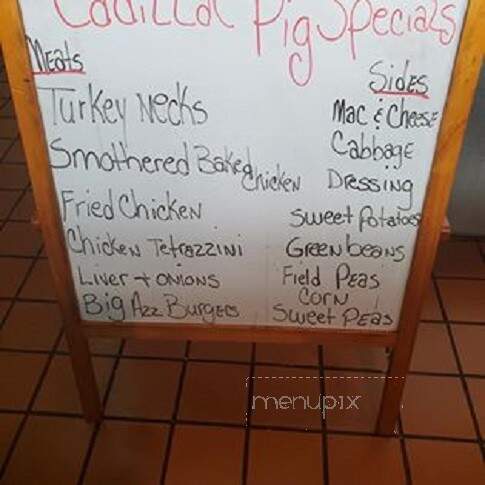 Cadillac Pig Specials
Meats
Turkey Necks
Smothered Baked Chicken
Fried Chicken
Chicken Tetrazzini
Liver + onions
Big Azz Burgers
Sides
Mac & Cheese
Cabbage
Dressing
Sweet Potatoes
Green beans
Field Peas
Corn
Sweet Peas
menupix